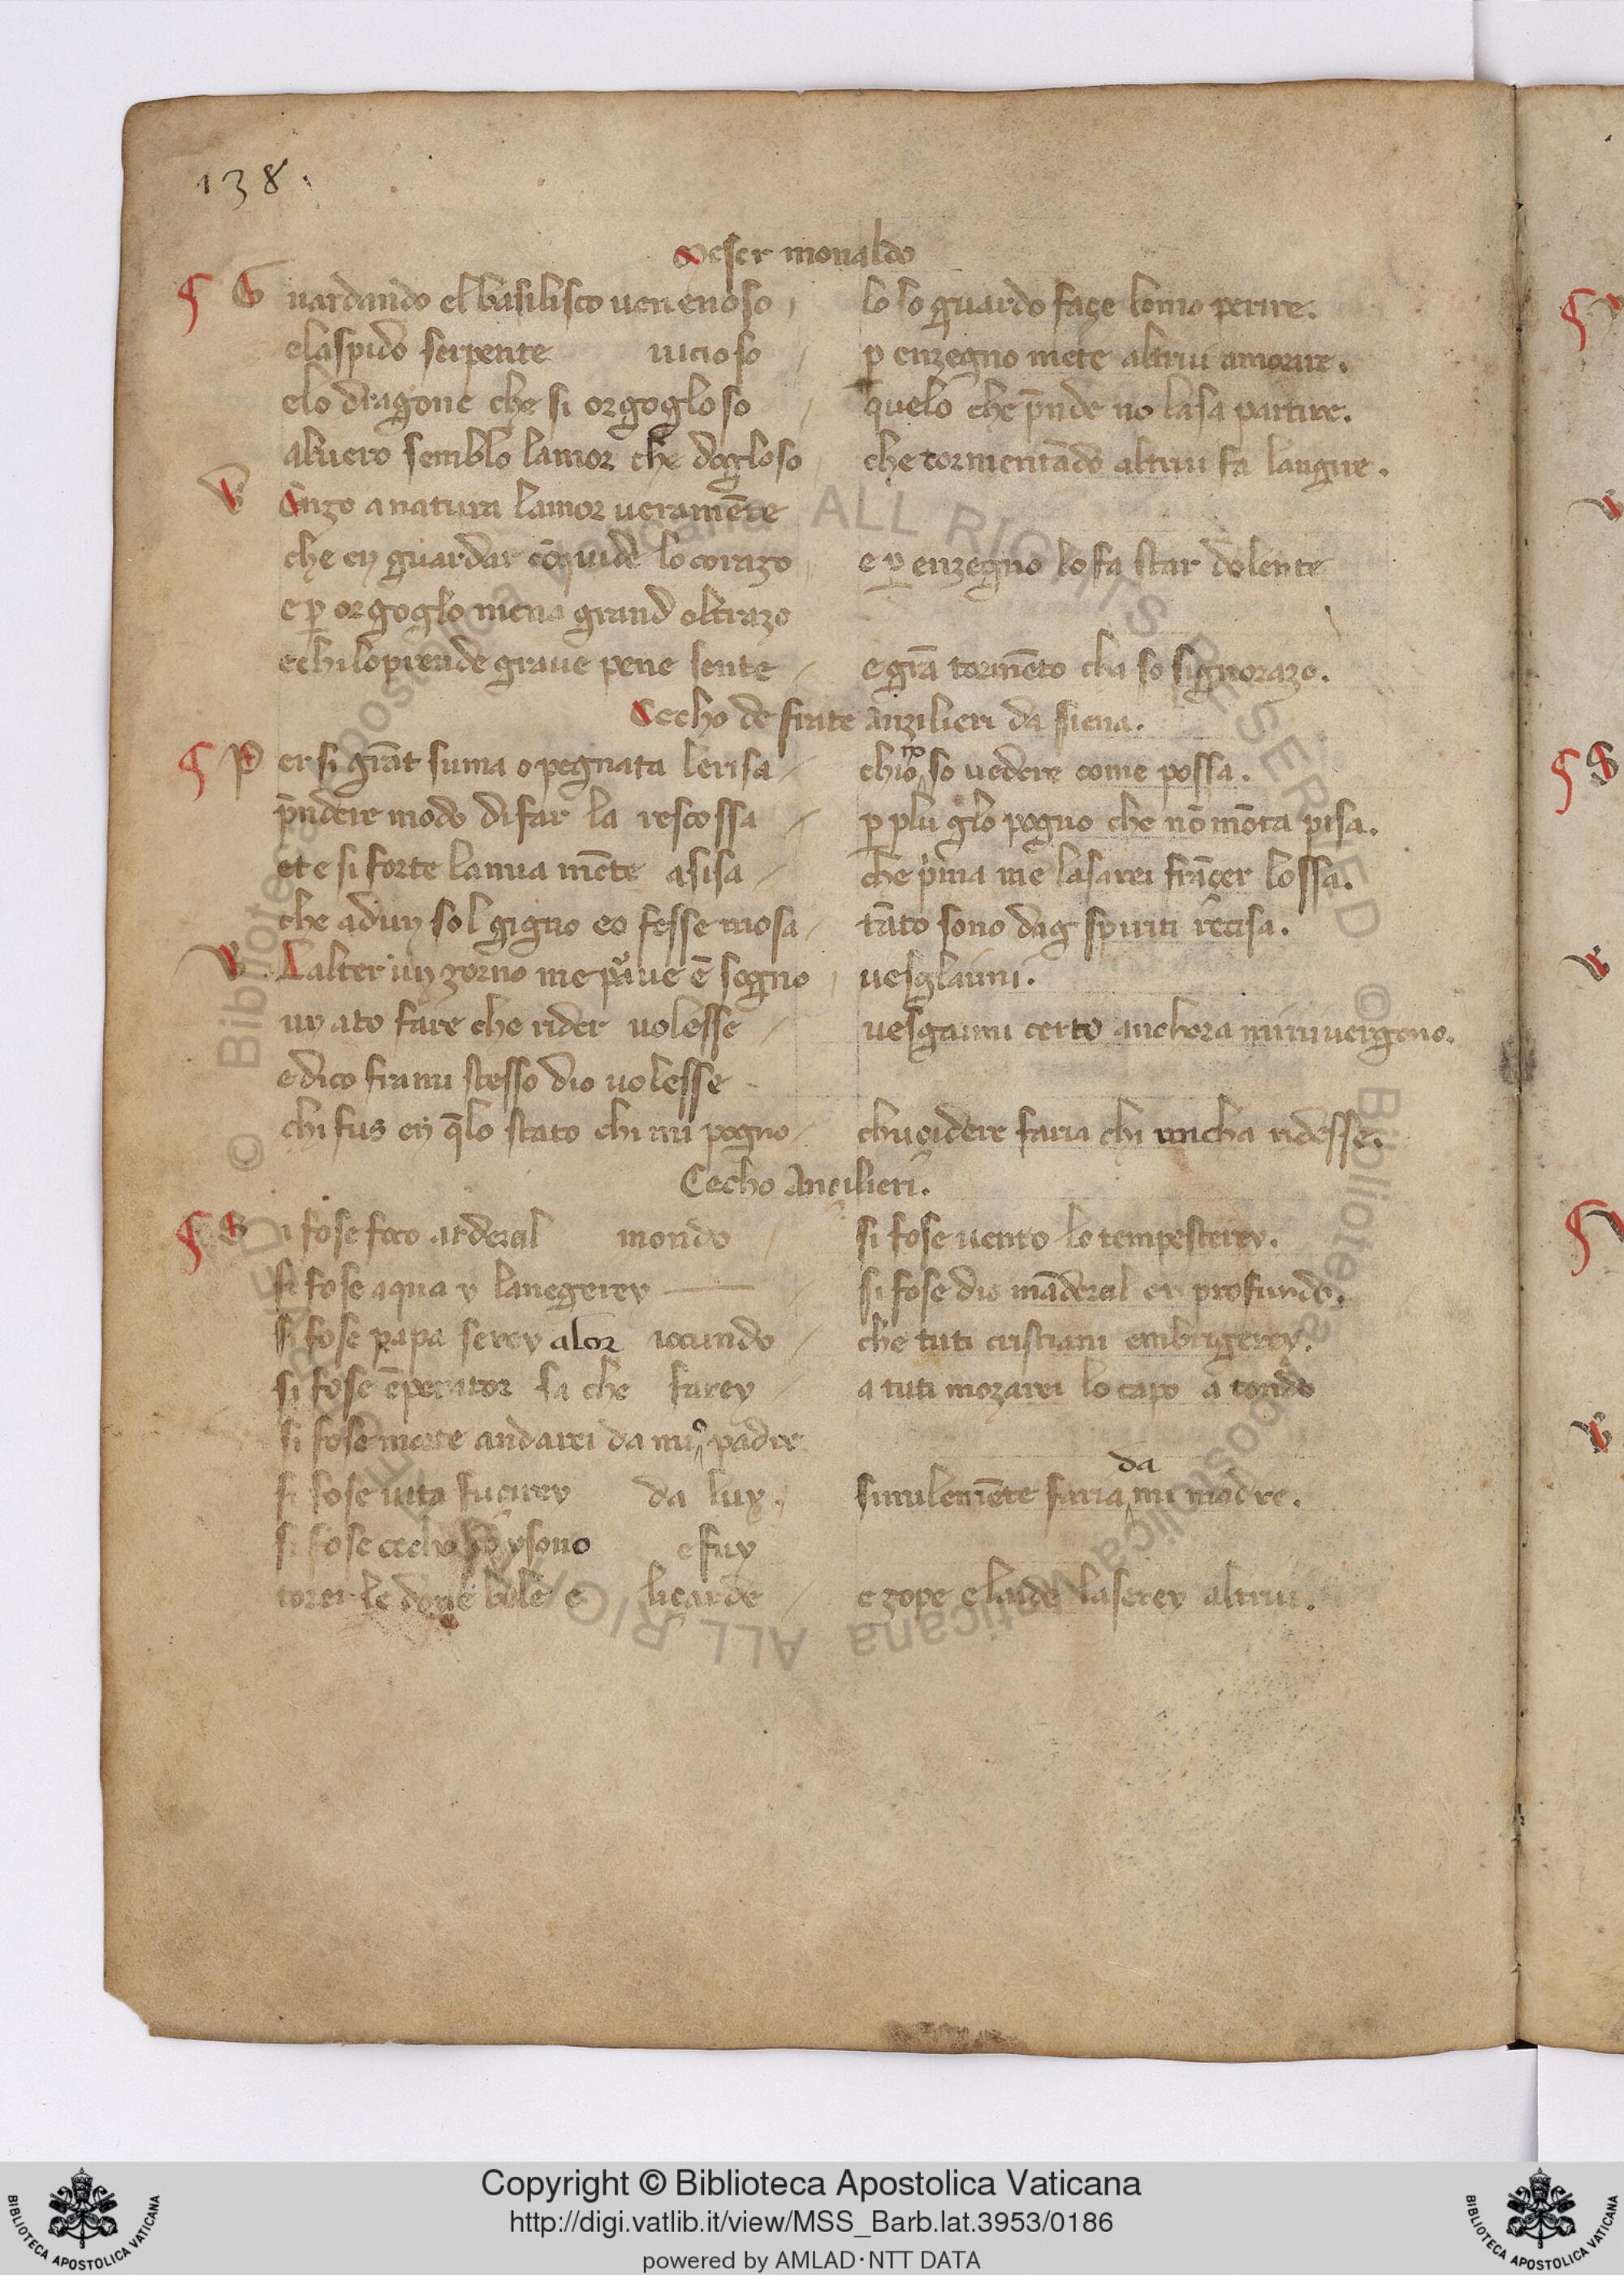 138.
Meser monaldo
Guardando el basilisco uenenoso lo so guardo façe lomo perire.
elaspido serpente uicioso p enzegno mete altrui amorire.
elo dragone che si orgogloso quelo che p̄nde no lasa partire.
aluero semblo lamor che dogloso che tormentādo altrui fa languire.
Anzo a natura lamor ueramēte
che en guardar cōquide lo corazo e p enzegno lo fa star dolente
e p orgoglo mena grand oltrazo
echiloprende graue pene sente e grā tormēto cha so signorazo.
Cecho de frate anzilieri da siena.
Per si grāt suma o pegnata lerisa chio no so uedere come possa.
p̄ndere modo di far la rescossa p plu glo pogno che nō mōta pisa.
et e si forte la mia mēte asisa che prima me lasarei frāçer lossa.
che adun sol gigno eo fesse mosa tāto sono dag spiriti recisa.
Lalter iun zorno me parue ē sogno uesglaimi.
un ato fare che rider uolesse uesgaimi certo anchora mini uergono.
e dico fra mi stesso dio uolesse
chi fus en q̄lo stato chi mi pogno chuçidere faria chi uncha ridesse.
Cecho Ançilieri.
Si fose foco arderel mondo si fose uento lo tempesterey.
si fose aqua y lanegerey si fose dio māderel en profundo.
si fose papa serey alor iocundo che tuti cristiani embrigerey.
si fose ēperator sa che farey a tuti mozarei lo capo a tondo
si fose morte andarei da mio padre
si fose uita fuçirey da luy. similemēte faria da mi madre.
si fose cecho so ysono e fuy
torei le done bele e liçarde e zope e laide laserey altrui.
Copyright © Biblioteca Apostolica Vaticana
http://digi.vatlib.it/view/MSS_Barb.lat.3953/0186
powered by AMLAD·NTT DATA